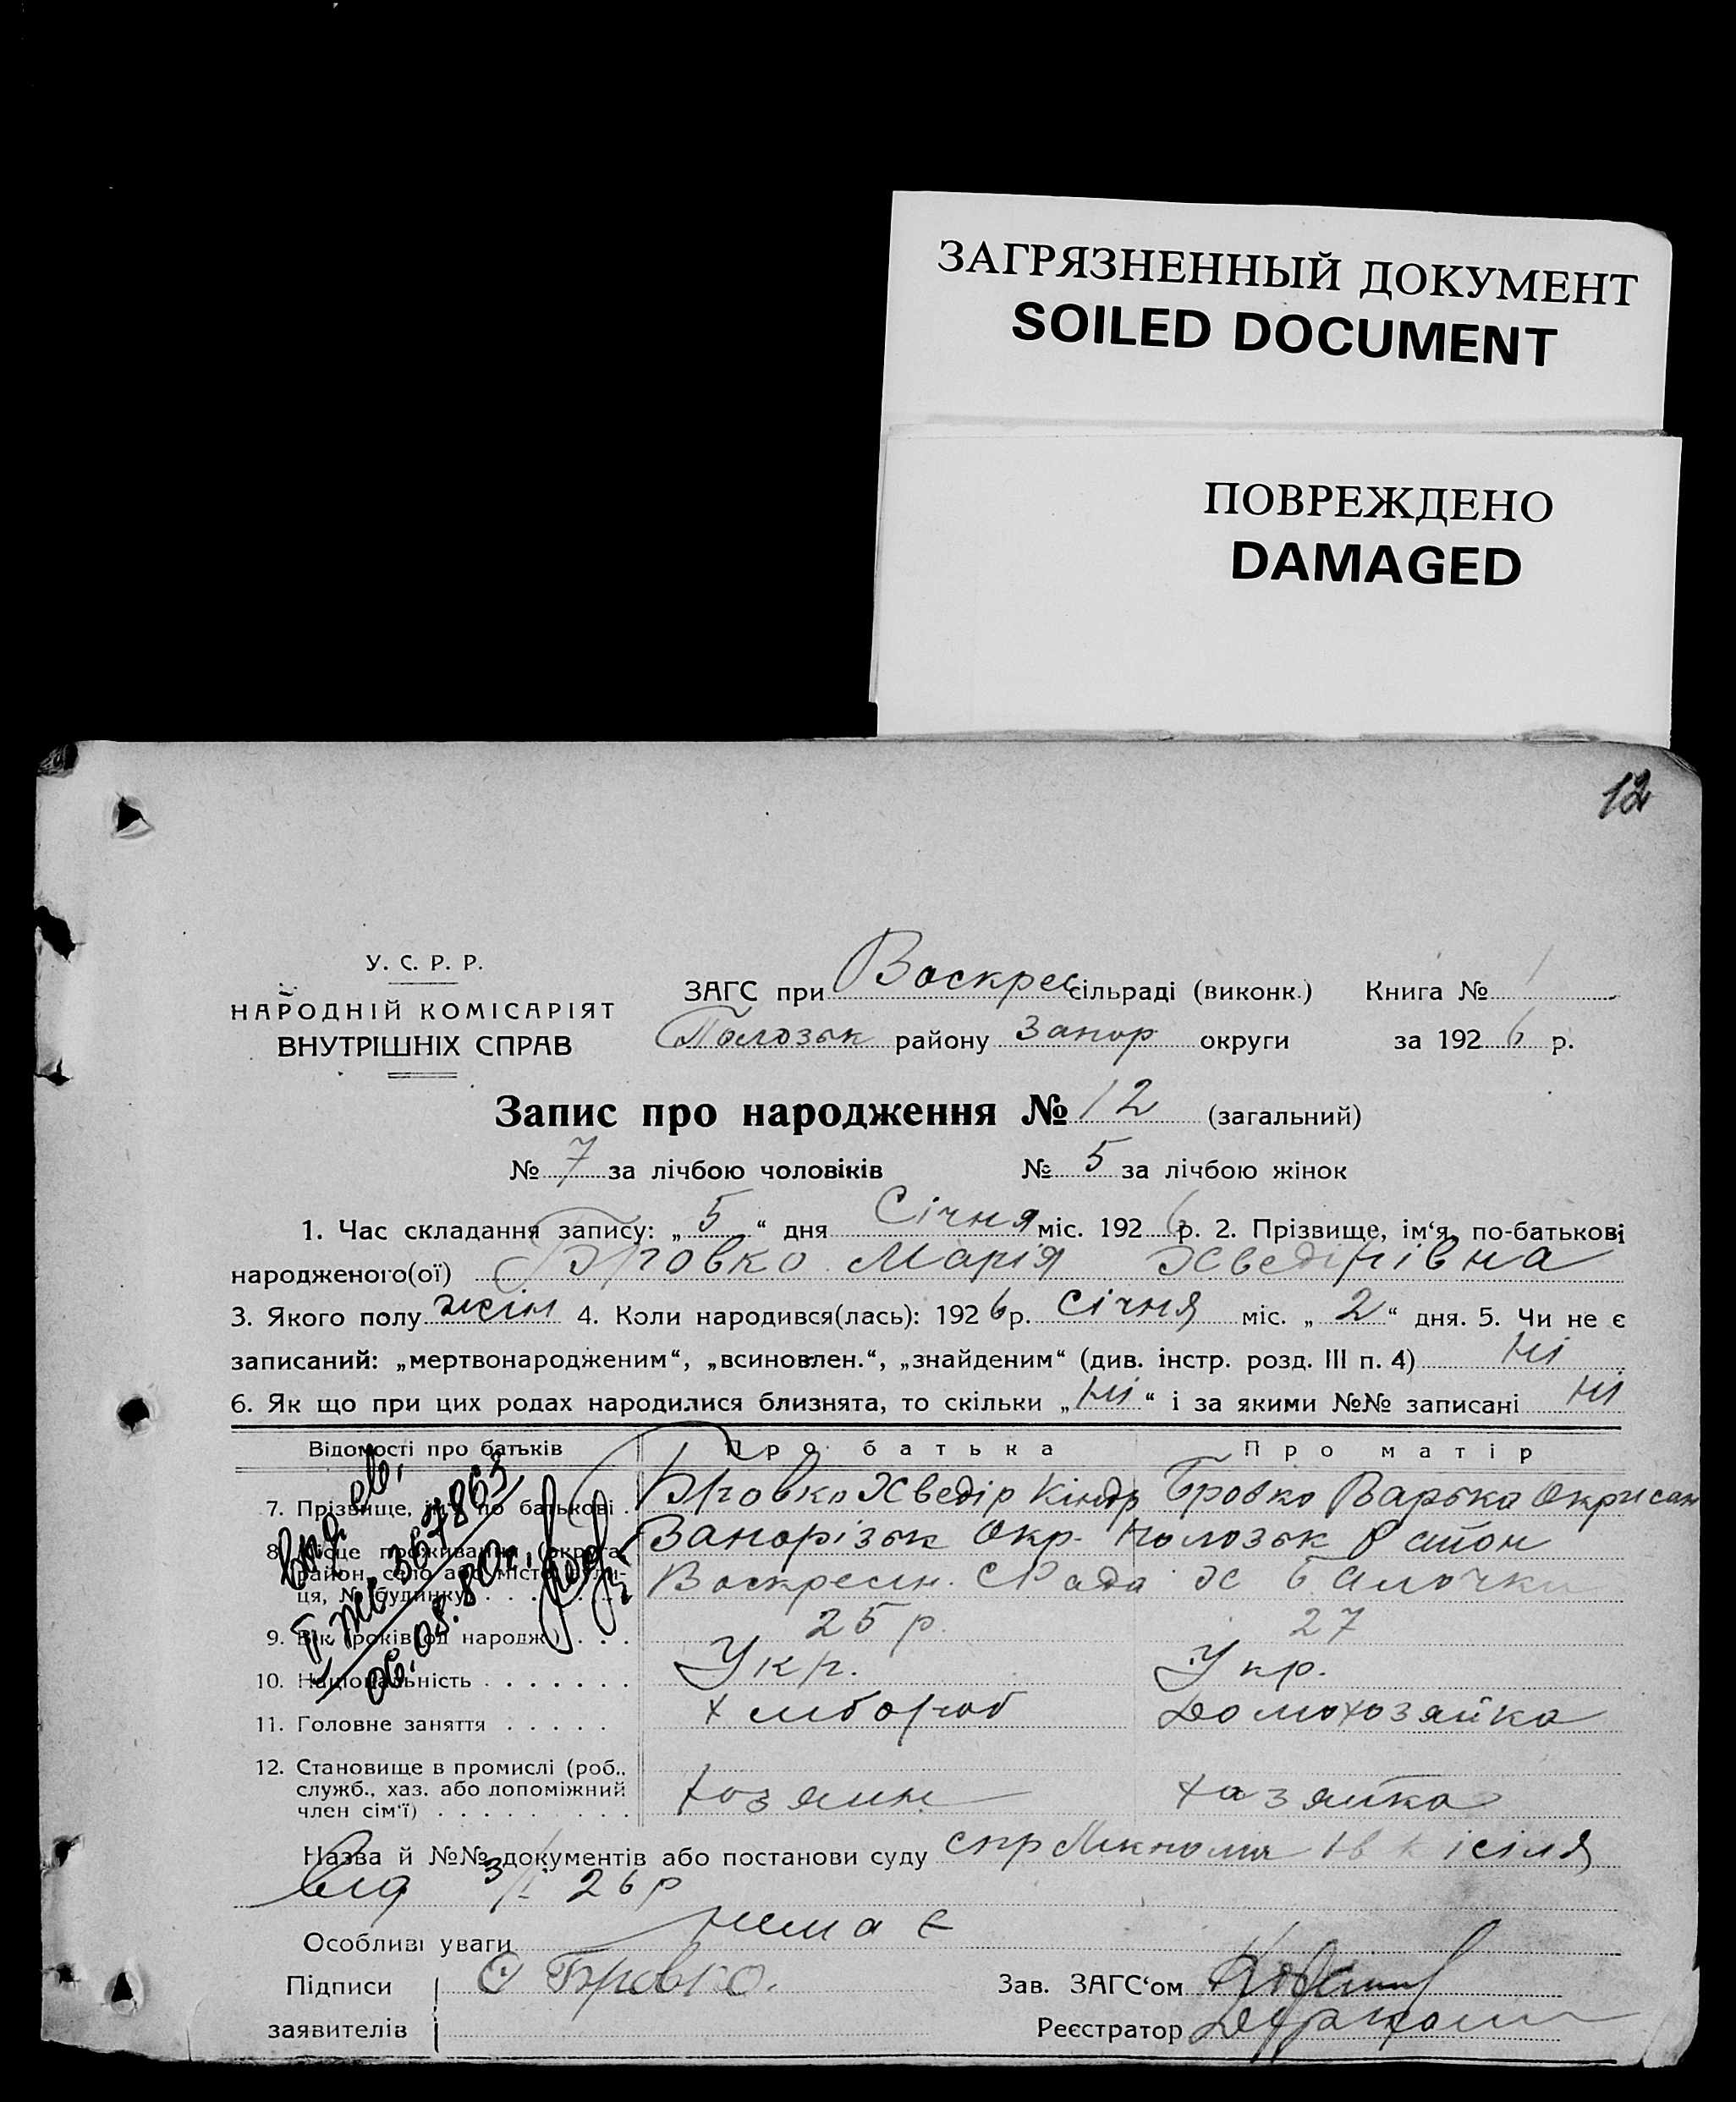 ЗАГРЯЗНЕННЫЙ ДОКУМЕНТ
SOILED DOCUMENT
ПОВРЕЖДЕНО
DAMAGED
12
У. С. Р. Р.
НАРОДНІЙ КОМІСАРІЯТ
ВНУТРІШНІХ СПРАВ
ЗАГС при Воскрес сільраді (виконк.) Книга № 1
Пологзьк району Запор округи за 1926 р.
Запис про народження № 12 (загальний)
№ 7 за лічбою чоловіків № 5 за лічбою жінок
1. Час складання запису: „5“ дня Січня міс. 1926 р. 2. Прізвище, ім‘я, по-батькові
народженого(ої) Бровко Марія Хведірівна
3. Якого полу жін 4. Коли народився(лась): 1926 р. січня міс. „2“ дня. 5. Чи не є
записаний: „мертвонародженим“, „всиновлен.“, „знайденим“ (див. інстр. розд. III п. 4) ні
6. Як що при цих родах народилися близнята, то скільки „ні“ і за якими №№ записані ні
Відомості про батьків Про батька Про матір
7. Прізвище, ім‘я, по батькові . Бровко Хведір Кіндр Бровко Варька
8. Місце проживання (округа,
район, село або місто, вули-
ця, № будинку) Запорізьк Окр. Полозьк Район
Воскресен. С Рада х Балочки
9. Вік (років од народж.) . . . 25 р. 27
10. Національність . . . . . . . Укр. Укр.
11. Головне заняття . . . . . хлібороб домохозяйка
12. Становище в промислі (роб.,
служб., хаз. або допоміжний
член сім‘ї) . . . . . . . . . хозяин хазяйка
367863
06.08.80г.
Назва й №№ документів або постанови суду спр
від 3/I 26 р
Особливі уваги немає
Підписи заявителів Бровко.
Зав. ЗАГС‘ом
Реєстратор